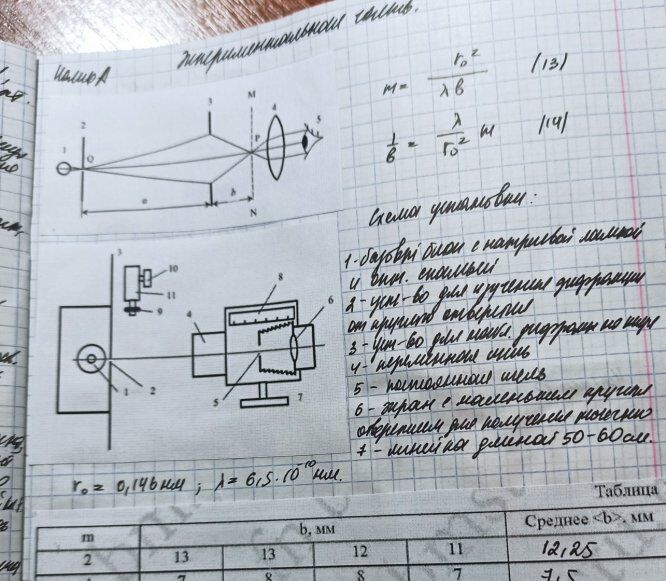 Экспериментальная часть.
m = r₀² / λb (13)
1/b = λ/r₀² m (14)
1 2 3 M 4 5
Q P
a b
N
3
10
11
9
8
4 6
1 2 5 7
Схема установки:
1 - базовый блок с натриевой лампой
и опт. скамьёй
2 - уст-во для изучения дифракции
от круглого отверстия
3 - уст-во для дифракц на
4 - переменная щель
5 - постоянная щель
6 - экран с маленьким круглым
отверстием для получения точечно
7 - линейка длиной 50-60 см.
r₀ = 0,146 нм; λ = 6,5·10⁻¹⁰ нм.
Таблица
m b, мм Среднее <b>, мм
2 13 13 12 11 12,25
7 8 8 7 7,5